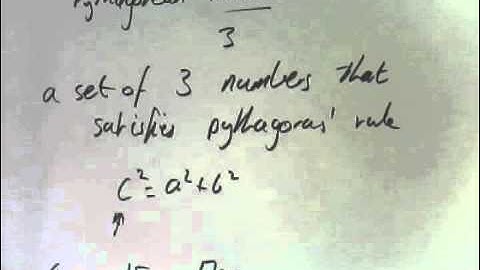 3
a set of 3 numbers that
satisfies pythagoras' rule
c² = a² + b²